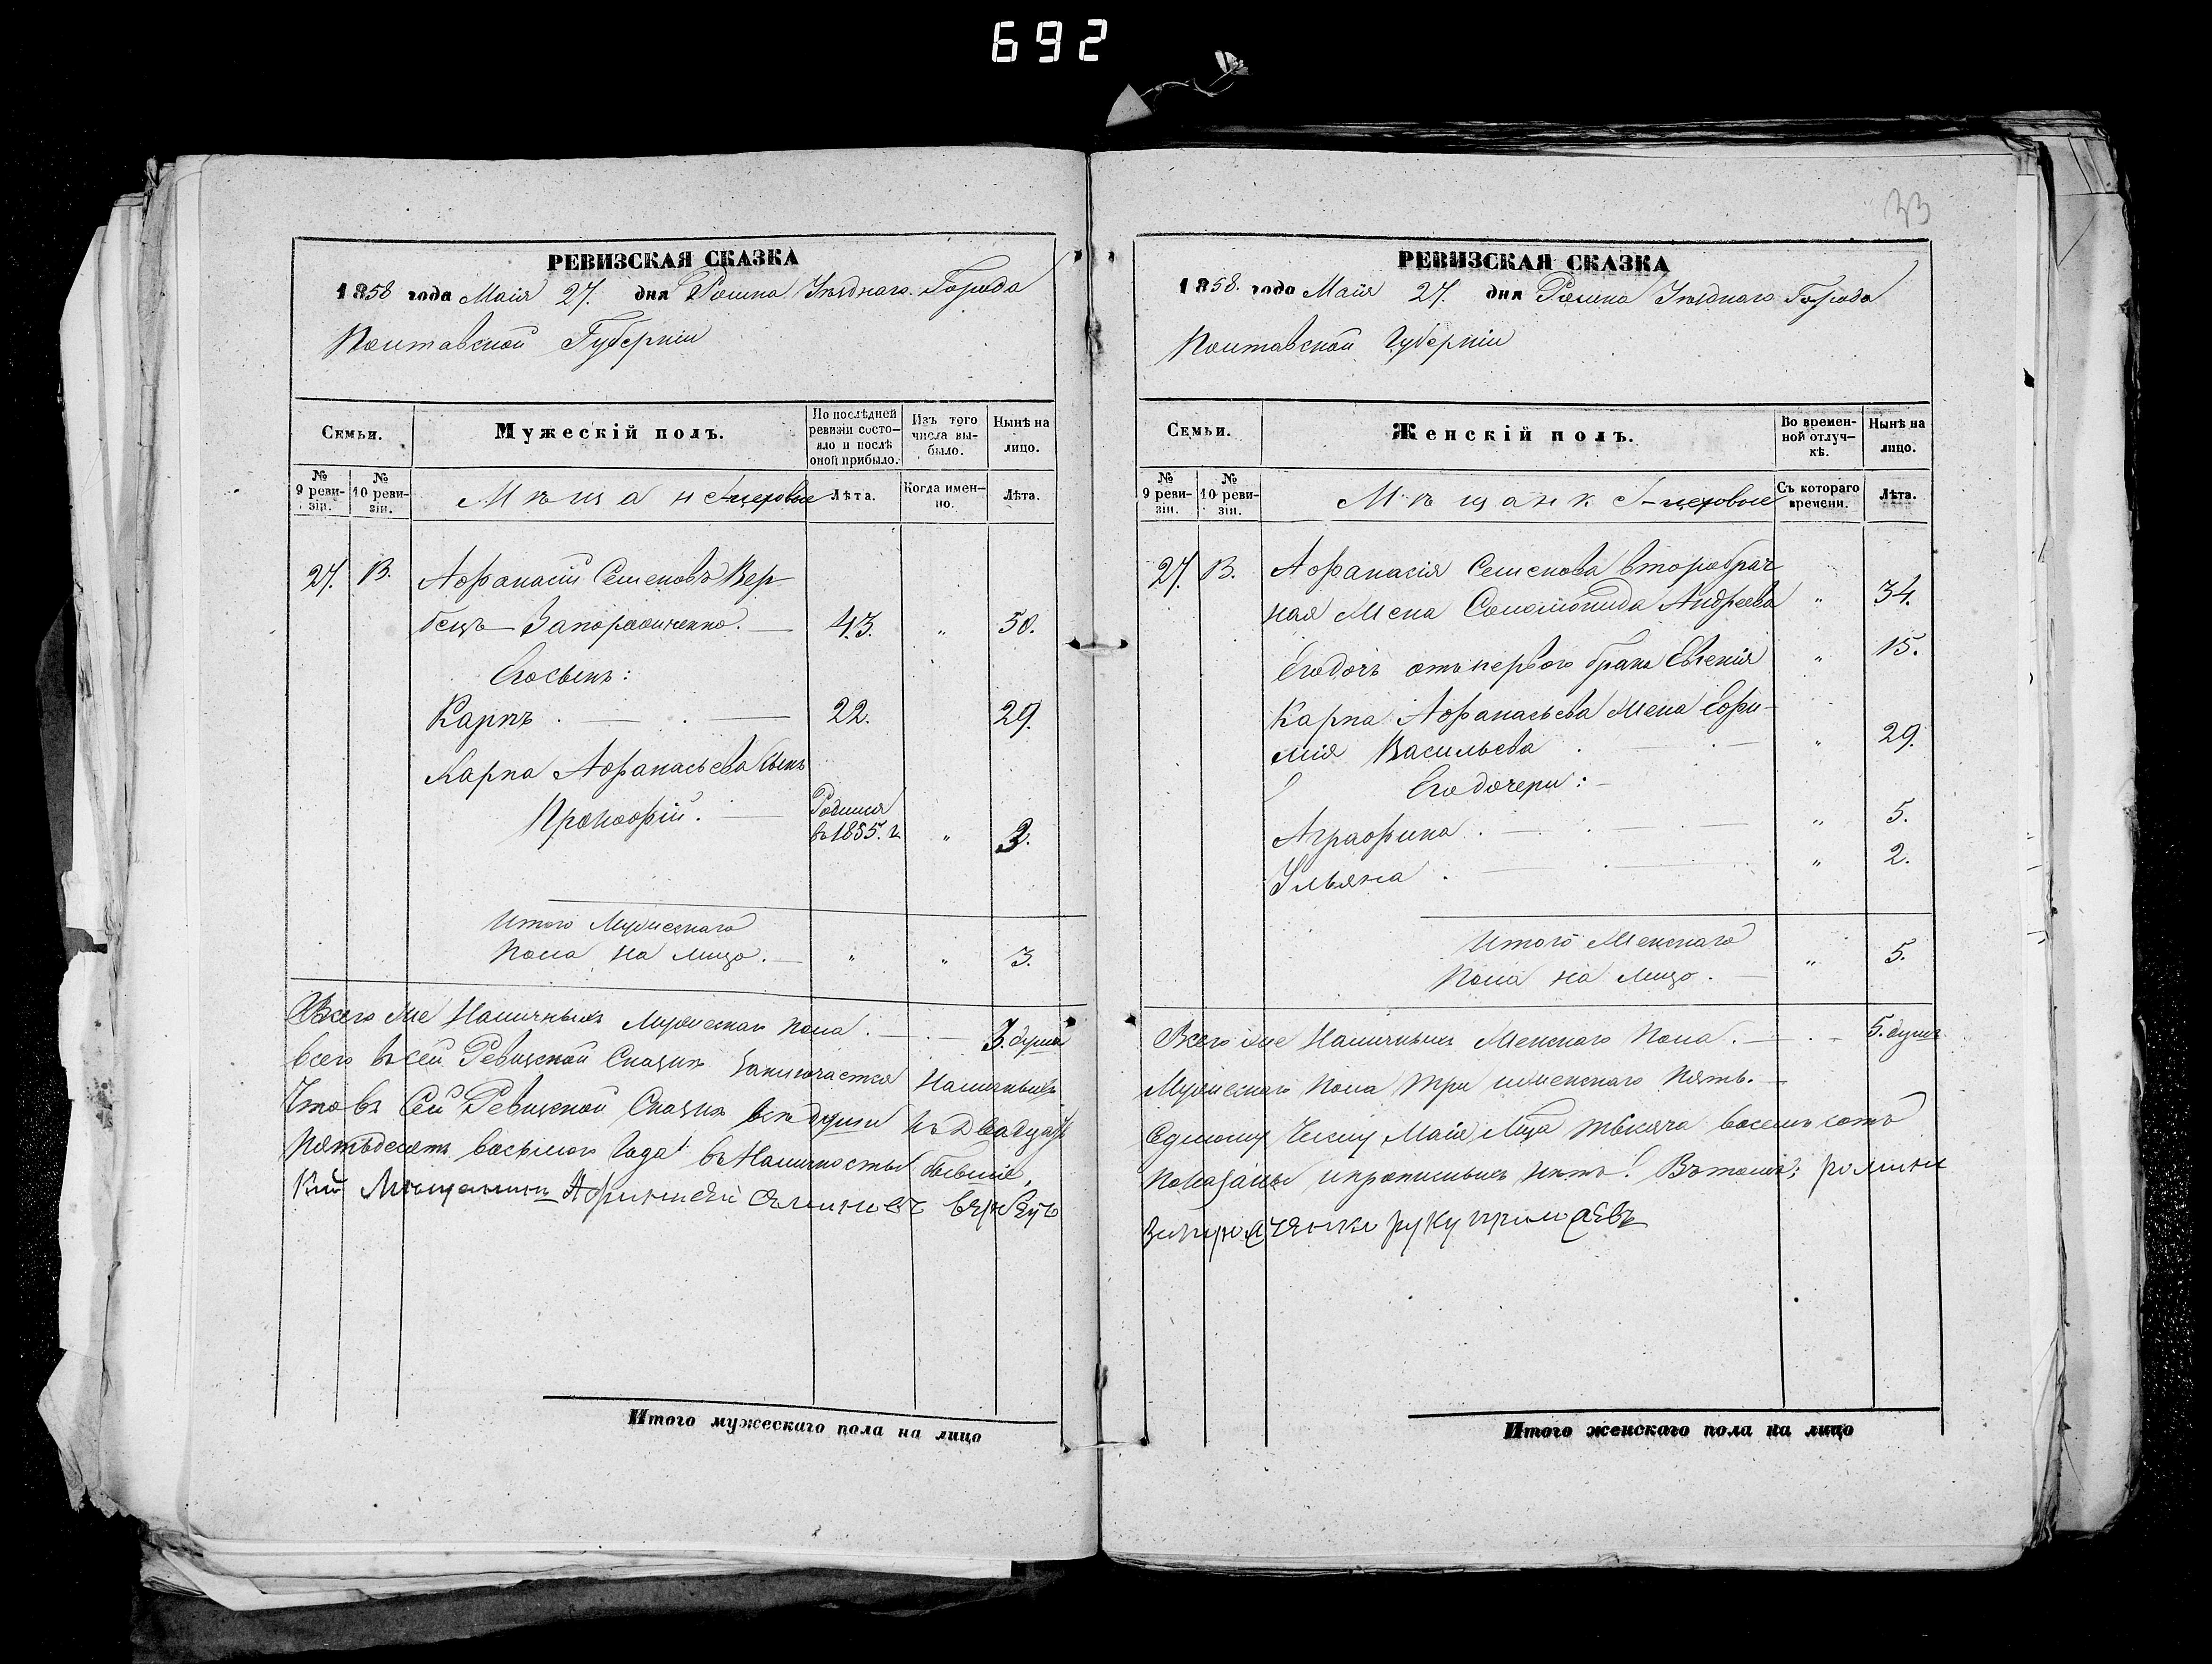 692
33
РЕВИЗСКАЯ СКАЗКА
1858 года Маія 27. дня Ромна Уѣзднаго Города
Полтавской Губерніи
Семьи.
Мужескій полъ.
По послѣдней ревизіи состояло и послѣ оной прибыло.
Изъ того числа выбыло.
Нынѣ на лицо.
№ 9 ревизіи.
№ 10 ревизіи.
Мѣщан
Лѣта.
Когда именно.
Лѣта.
27. 13. Афанасій Семеновъ Вер-
бецъ Запорожченко. — 43. „ 50.
Его сынъ:
Карпъ . — . — 22. 29.
Карпа Афанасьева сынъ
Прокофій. — Родился въ 1855. г. „ 3.
Итого Мужескаго
Пола на лицо. — „ „ 3.
Всего же Наличныхъ Мужескаго пола. — . — 3. душъ
Всего въ сей Ревизской Сказкѣ заключается Наличныхъ
Что въ Сей Ревизской Сказкѣ всѣ души къ Двадцать
Пятьдесятъ восьмого Года въ Наличности бывшіе,
кій Мѣщанинъ Афанасій Семеновъ Вербецъ
Итого мужескаго пола на лицо
РЕВИЗСКАЯ СКАЗКА
1858. года Маія 27. дня Ромна Уѣзднаго Города
Полтавской Губерніи
Семьи.
Женскій полъ.
Во временной отлучкѣ.
Нынѣ на лицо.
№ 9 ревизіи.
№ 10 ревизіи.
Мѣщанк
Съ котораго времени.
Лѣта.
27. 13. Афанасія Семенова второбрач-
ная Жена Соломонида Андреева „ 34.
Его дочь отъ первого брака Евгенія „ 15.
Карпа Афанасьева Жена Ефи-
мія Васильева . — . — „ 29.
Его дочери: —
Аграфина . — . — . — „ 5.
Ульяна . — . — „ 2.
Итого Женскаго
Пола на лицо. — „ 5.
Всего же Наличныхъ Женскаго Пола. — . — 5. душъ
Мужескаго Пола три и женскаго пять. —
Седьмому Числу Маія Мѣсяца тысяча восемь сотъ
показаны и прописныхъ нѣтъ. Въ томъ
руку приложевъ
Итого женскаго пола на лицо